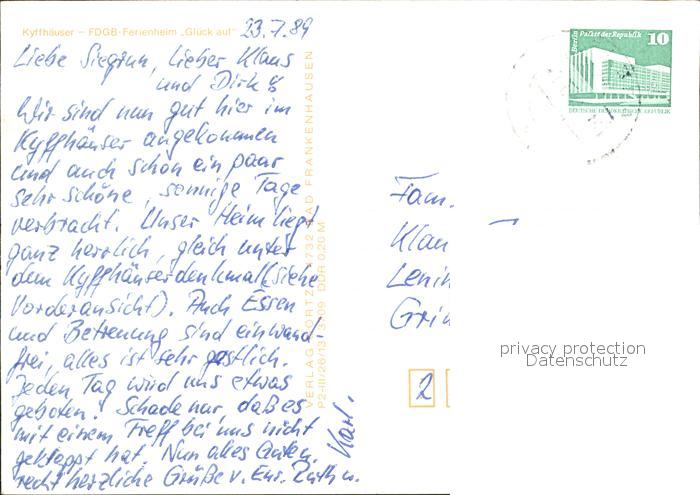 Kyffhäuser – FDGB-Ferienheim „Glück auf"
23.7.89
Liebe Siegrun, lieber Klaus
und Dirk!
Wir sind nun gut hier im
Kyffhäuser angekommen
und auch schon ein paar
sehr schöne, sonnige Tage
verbracht. Unser Heim liegt
ganz herrlich, gleich unter
dem Kyffhäuserdenkmal (siehe
Vorderansicht). Auch Essen
und Betreuung sind einwand-
frei, alles ist sehr gastlich.
Jeden Tag wird uns etwas
geboten! Schade nur, daß es
mit einem Treff bei uns nicht
geklappt hat. Nun alles Gute,
recht herzliche Grüße v. Eur. Ruth u.
Karl.
P2-III/26/13 DDR 0,20 M
Berlin Palast der Republik
10
DEUTSCHE DEMOKRATISCHE REPUBLIK
Fam.
Klau
Lenin
Grim
2
privacy protection
Datenschutz